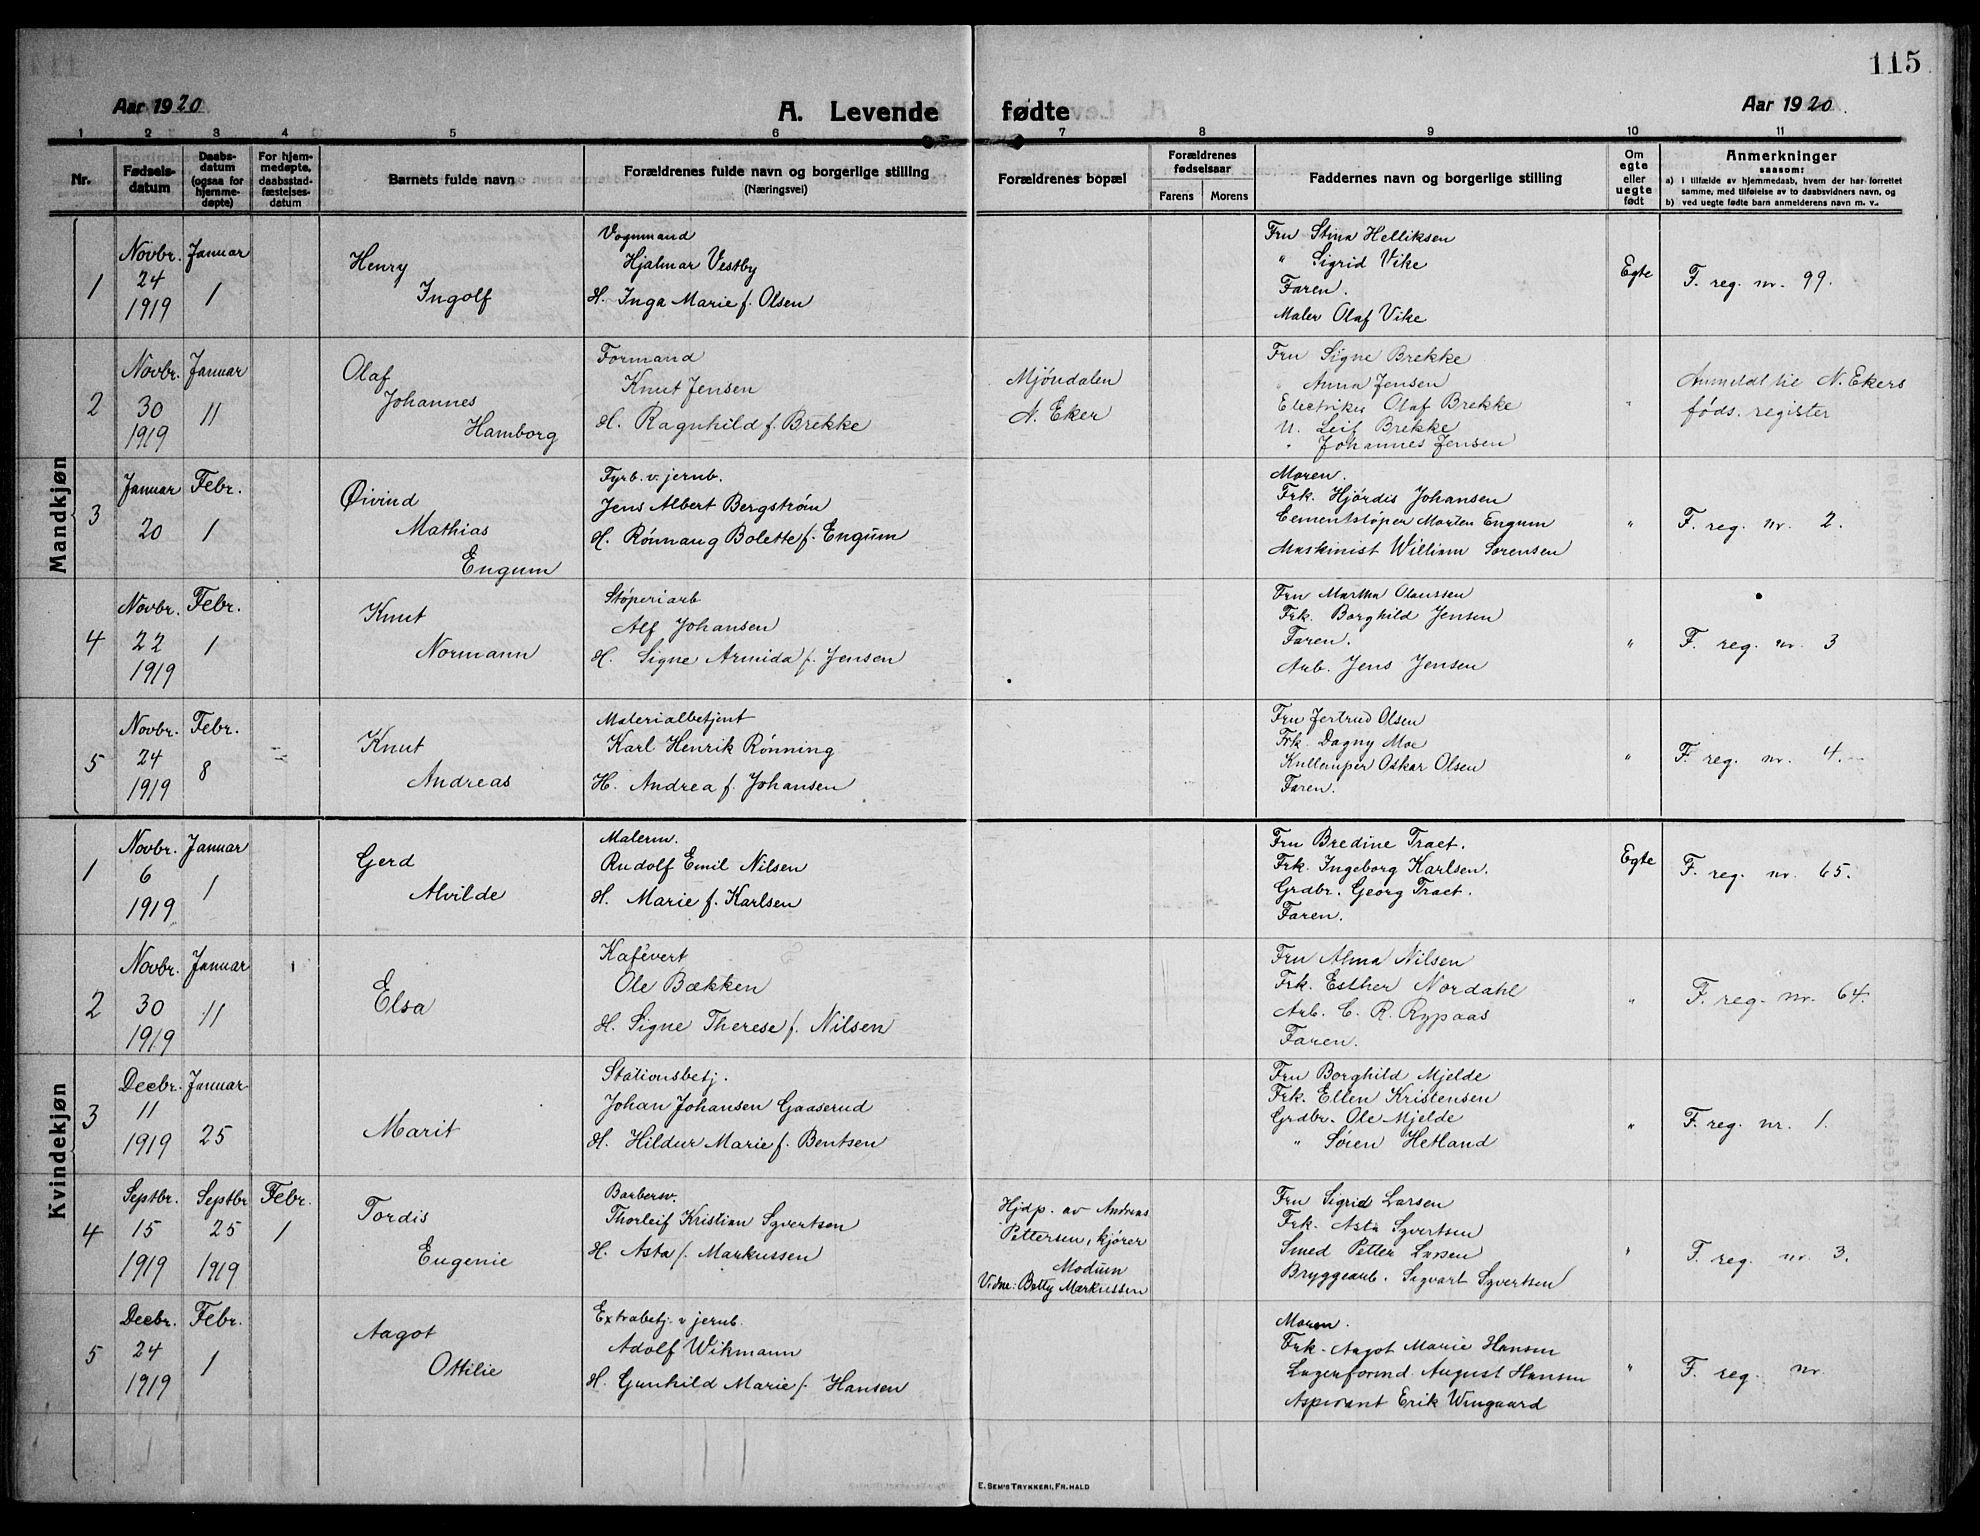 115
Aar 1920
A. Levende fødte
Aar 1920
1 2 3 4 5 6 7 8 9 10 11
Nr.
Fødsels-
datum
Daabs-
datum
(ogsaa for
hjemme-
døpte)
For hjem-
medøpte,
daabsstad-
fæstelses-
datum
Barnets fulde navn
Forældrenes fulde navn og borgerlige stilling
(Næringsvei)
Forældrenes bopæl
Forældrenes
fødselsaar
Farens Morens
Faddernes navn og borgerlige stilling
Om
egte
eller
uegte
født
Anmerkninger
saasom:
a) I tilfælde av hjemmedaab, hvem der har forrettet
samme, med tilføielse av to daabsvidners navn, og
b) ved uegte fødte barn anmelderens navn m. v.
Mandkjøn
1
Novbr.
24
1919
Januar
1
Henry
Ingolf
Vognmand
Hjalmar Vestby
H. Inga Marie f. Olsen
Fru Stina Helliksen
" Sigrid Vike
Faren.
Maler Olaf Vike
Egte
F. reg. nr. 99.
2
Novbr.
30
1919
Januar
11
Olaf
Johannes
Hamborg
Formand
Knut Jensen
H. Ragnhild f. Brekke
Mjøndalen
N. Eker
Fru Signe Brekke
" Anna Jensen
Electriker Olaf Brekke
U. Leif Brekke
" Johannes Jensen
"
Anmeldt til N. Ekers
føds. register
3
Januar
20
Febr.
1
Øivind
Mathias
Engum
Fyrb. v. jernb.
Jens Albert Bergstrøm
H. Rønnaug Bolette f. Engum
Moren.
Frk. Hjørdis Johansen
Cementstøper Morten Engum
Maskinist William Sørensen
"
F. reg. nr. 2.
4
Novbr.
22
1919
Febr.
1
Knut
Normann
Støperiarb
Alf Johansen
H. Signe Armida f. Jensen
Fru Martha Olaussen
Frk. Borghild Jensen
Faren.
Arb. Jens Jensen
"
F. reg. nr. 3
5
Novbr.
24
1919
Febr.
8
Knut
Andreas
Materialbetjent
Karl Henrik Rønning
H. Andrea f. Johansen
Fru Jertrud Olsen
Frk. Dagny Moe
Oskar Olsen
Faren.
"
F. reg. nr. 4.
Kvindekjøn
1
Novbr.
6
1919
Januar
1
Gerd
Alvilde
Malerm.
Rudolf Emil Nilsen
H. Marie f. Karlsen
Fru Bredine Traet.
Frk. Ingeborg Karlsen.
Grdbr. Georg Traet.
Faren.
Egte
F. reg. nr. 65.
2
Novbr.
30
1919
Januar
11
Elsa
Kafévert
Ole Bækken
H. Signe Therese f. Nilsen
Fru Alma Nilsen
Frk. Esther Nordahl
Arb. C. R. Rypaas
Faren.
"
F. reg. nr. 64.
3
Decbr.
11
1919
Januar
25
Marit
Stationsbetj.
Johan Johansen Gaaserud
H. Hildur Marie f. Bentsen
Fru Borghild Mjelde
Frk. Ellen Kristensen
Grdbr. Ole Mjelde
" Søren Hetland
"
F. reg. nr. 1.
4
Septbr.
15
1919
Septbr
25
1919
Febr.
1
Tordis
Eugenie
Barbersv.
Thorleif Kristian Syvertsen
H. Asta f. Markussen
Hjdp. av Andreas
Pettersen, kjører
Modum
Vidne: Betty Markussen
Fru Sigrid Larsen
Frk. Asta Syvertsen
Smed Petter Larsen
Bryggearb. Sigvart Syvertsen
"
F. reg. nr. 3.
5
Decbr.
24
1919
Febr.
1
Aagot
Ottilie
Extrabetj. v jernb.
Adolf Wikmann
H. Gunhild Marie f. Hansen
Moren.
Frk. Aagot Marie Hansen
Lagerformd August Hansen
Aspirant Erik Wingaard
"
F. reg. nr.
E. SEM'S TRYKKERI, FR.HALD